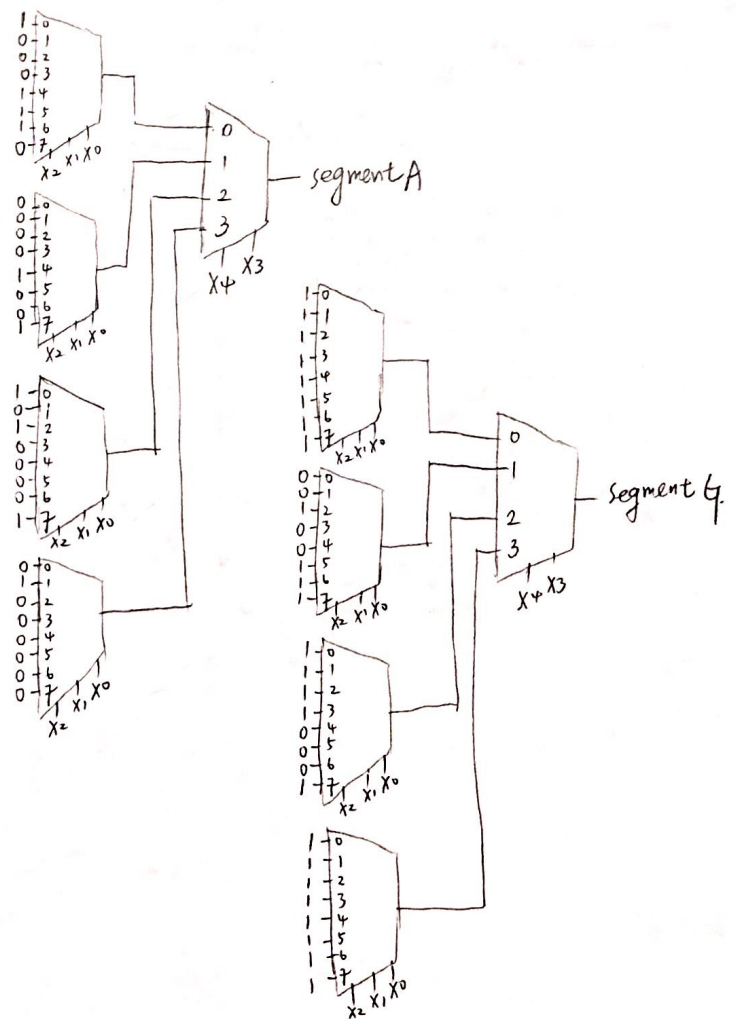 1 0
0 1
0 2
0 3
1 4
1 5
1 6
0 7
X2 X1 X0
0 0
0 1
0 2
0 3
1 4
0 5
0 6
1 7
X2 X1 X0
1 0
0 1
1 2
0 3
0 4
0 5
0 6
1 7
X2 X1 X0
0 0
1 1
0 2
0 3
0 4
0 5
0 6
0 7
X2 X1 X0
0
1
2
3
X4 X3
segment A
1 0
1 1
1 2
1 3
1 4
1 5
1 6
1 7
X2 X1 X0
0 0
0 1
1 2
0 3
0 4
1 5
1 6
1 7
X2 X1 X0
1 0
1 1
1 2
1 3
0 4
0 5
0 6
1 7
X2 X1 X0
1 0
1 1
1 2
1 3
1 4
1 5
1 6
1 7
X2 X1 X0
0
1
2
3
X4 X3
segment G.